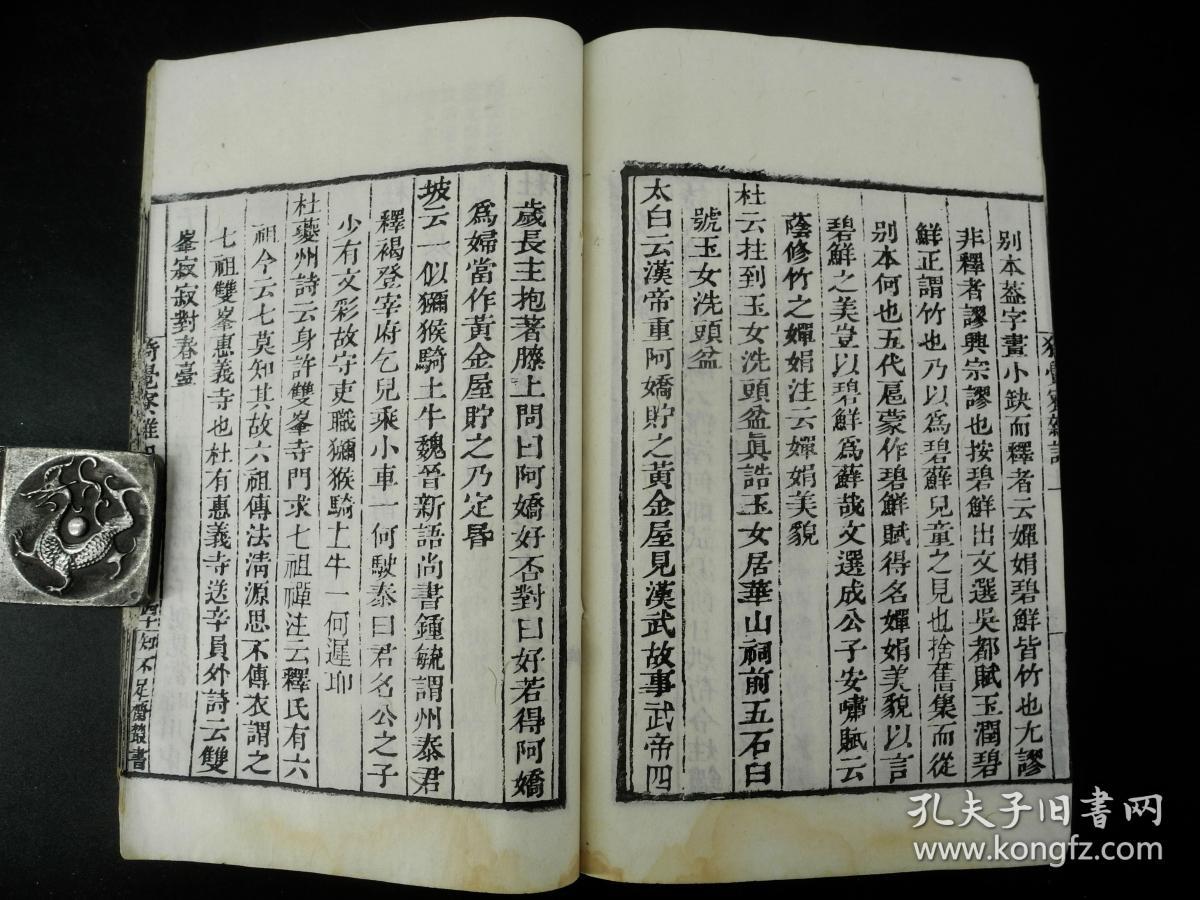 別本蓋字畫小缺而釋者云嬋娟碧鮮皆竹也尢謬
非釋者謬興宗謬也按碧鮮出文選吳都賦玉潤碧
鮮正謂竹也乃以爲碧蘚兒童之見也捨舊集而從
別本何也五代扈蒙作碧鮮賦得名嬋娟美貌以言
碧鮮之美豈以碧鮮爲蘚哉文選成公子安嘯賦云
蔭修竹之嬋娟注云嬋娟美貌
杜云拄到玉女洗頭盆眞誥玉女居華山祠前五石臼
號玉女洗頭盆
太白云漢帝重阿嬌貯之黃金屋見漢武故事武帝四
歲長主抱著膝上問曰阿嬌好否對曰好若得阿嬌
爲婦當作黃金屋貯之乃定昏
坡云一似獼猴騎土牛魏晉新語尚書鍾毓謂州泰君
釋褐登宰府乞兒乘小車一何駛泰曰君名公之子
少有文彩故守吏職獼猴騎土牛一何遲邛
杜夔州詩云身許雙峯寺門求七祖禪注云釋氏有六
祖今云七莫知其故六祖傳法淸源思不傳衣謂之
七祖雙峯惠義寺也杜有惠義寺送辛員外詩云雙
峯寂寂對春臺
知不足齋叢書
孔夫子旧书网
www.kongfz.com